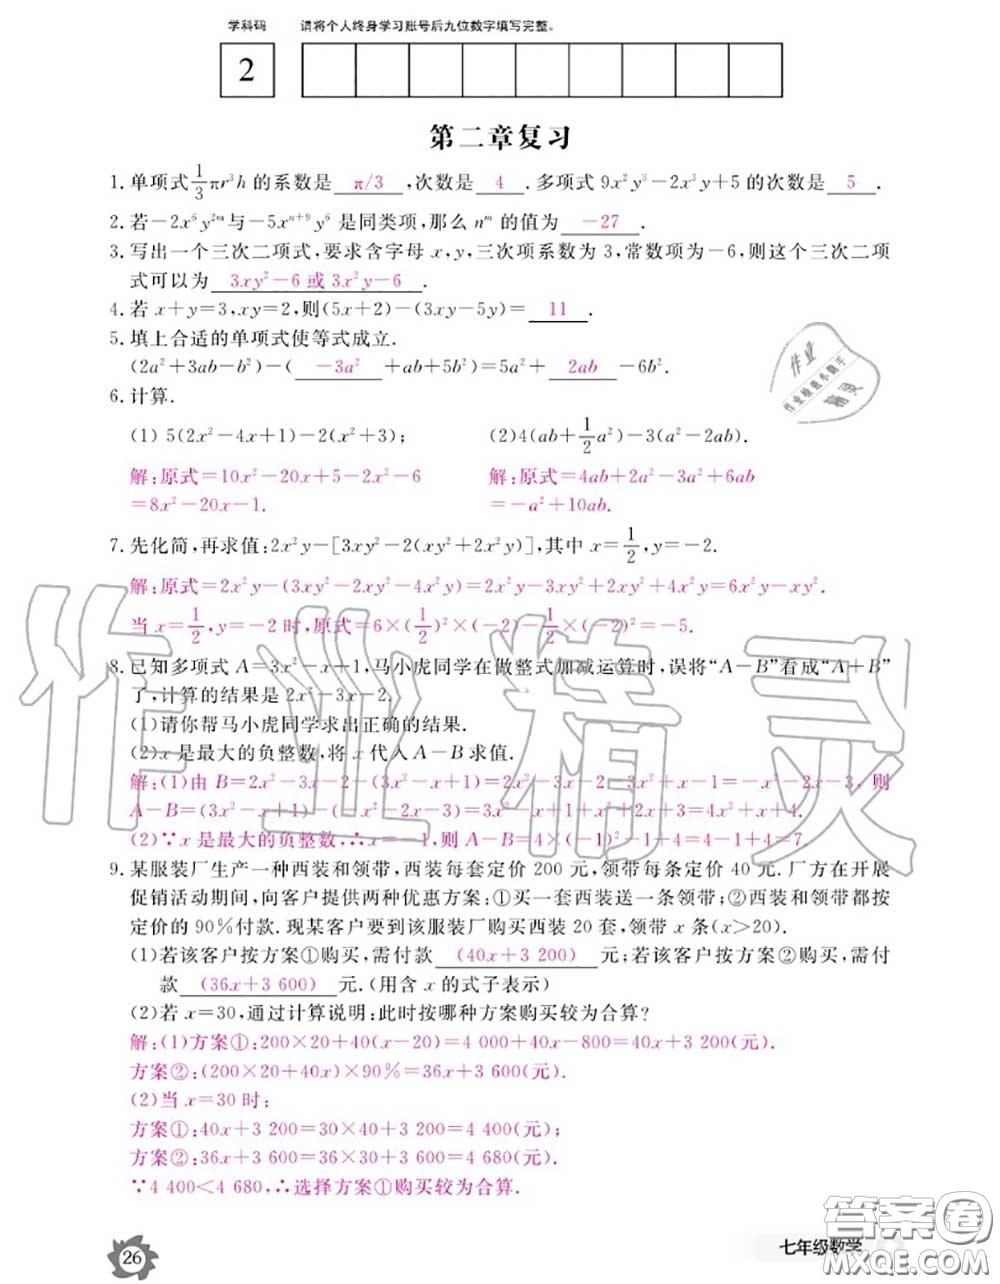 学科码 请将个人终身学习账号后九位数字填写完整。
2
第二章复习
1. 单项式1/3πr³h 的系数是 π/3 ,次数是 4 . 多项式 9x²y³-2x³y+5 的次数是 5 .
2. 若-2x⁶y²ᵐ与-5xⁿ⁺⁹y⁶ 是同类项,那么 nᵐ 的值为 -27 .
3. 写出一个三次二项式,要求含字母 x,y,三次项系数为 3,常数项为-6,则这个三次二项
式可以为 3xy²-6 或 3x²y-6 .
4. 若 x+y=3,xy=2,则(5x+2)-(3xy-5y)= 11 .
5. 填上合适的单项式使等式成立.
(2a²+3ab-b²)-( -3a² +ab+5b²)=5a²+ 2ab -6b².
6. 计算.
(1) 5(2x²-4x+1)-2(x²+3); (2)4(ab+1/2a²)-3(a²-2ab).
解:原式=10x²-20x+5-2x²-6 解:原式=4ab+2a²-3a²+6ab
=8x²-20x-1. =-a²+10ab.
7. 先化简,再求值:2x²y-[3xy²-2(xy²+2x²y)],其中 x=1/2,y=-2.
解:原式=2x²y-(3xy²-2xy²-4x²y)=2x²y-3xy²+2xy²+4x²y=6x²y-xy².
当 x=1/2,y=-2 时,原式=6×(1/2)²×(-2)-1/2×(-2)²=-5.
8. 已知多项式 A=3x²-x+1,马小虎同学在做整式加减运算时,误将“A-B”看成“A+B”
了,计算的结果是 2x²-3x-2.
(1)请你帮马小虎同学求出正确的结果.
(2)x 是最大的负整数,将 x 代入 A-B 求值.
解:(1)由 B=2x²-3x-2-(3x²-x+1)=2x²-3x-2-3x²+x-1=-x²-2x-3,则
A-B=(3x²-x+1)-(-x²-2x-3)=3x²-x+1+x²+2x+3=4x²+x+4.
(2)∵x 是最大的负整数,∴x=-1,则 A-B=4×(-1)²-1+4=4-1+4=7.
9. 某服装厂生产一种西装和领带,西装每套定价 200 元,领带每条定价 40 元.厂方在开展
促销活动期间,向客户提供两种优惠方案:①买一套西装送一条领带;②西装和领带都按
定价的 90%付款.现某客户要到该服装厂购买西装 20 套,领带 x 条(x>20).
(1)若该客户按方案①购买,需付款 (40x+3 200) 元;若该客户按方案②购买,需付
款 (36x+3 600) 元.(用含 x 的式子表示)
(2)若 x=30,通过计算说明:此时按哪种方案购买较为合算?
解:(1)方案①:200×20+40(x-20)=4 000+40x-800=40x+3 200(元).
方案②:(200×20+40x)×90%=36x+3 600(元).
(2)当 x=30 时:
方案①:40x+3 200=30×40+3 200=4 400(元);
方案②:36x+3 600=36×30+3 600=4 680(元).
∵4 400<4 680,∴选择方案①购买较为合算.
26
七年级数学
作业精灵
答案圈
MXQE.COM